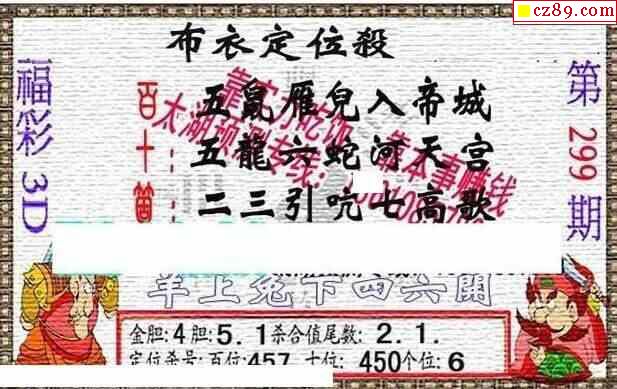 cz89.com
布衣定位殺
福彩3D
第299期
百 五鼠雁兒入帝城
十 五龍六蛇河天宫
二三引吭七高歌
靠本事赚钱
羊上兔下四六開
金胆:4胆:5.1杀合值尾数:2.1.
定位杀号:百位:457 十位:450个位:6